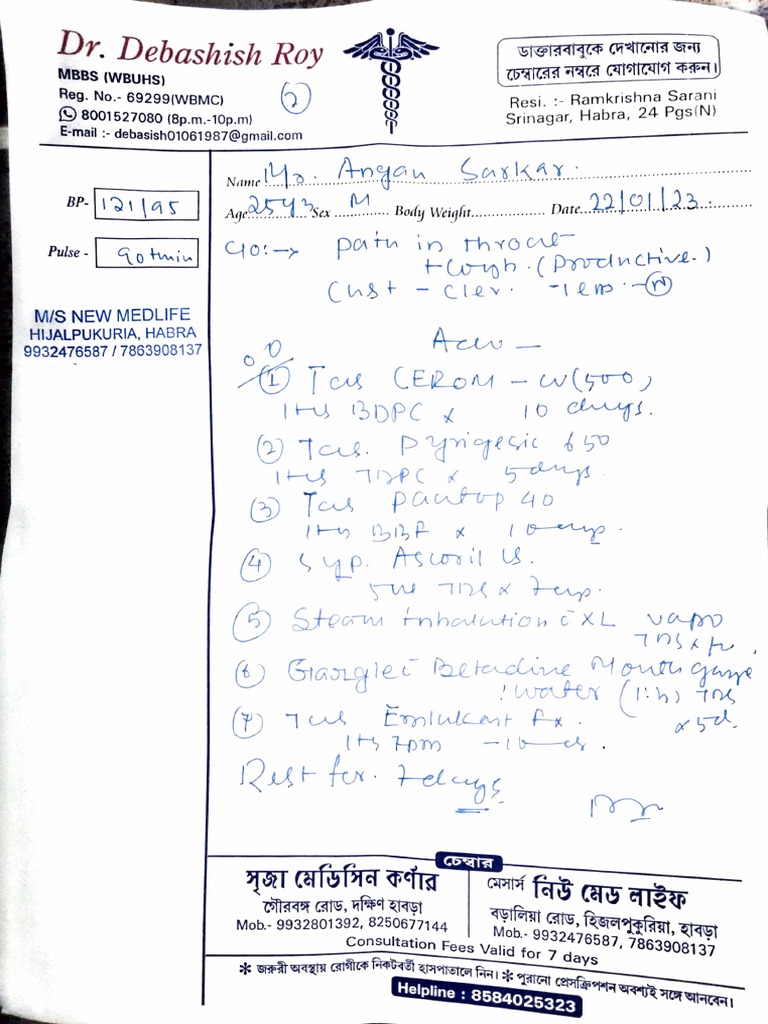 Dr. Debashish Roy
MBBS (WBUHS)
Reg. No.- 69299(WBMC)
8001527080 (8p.m.-10p.m)
E-mail :- debasish01061987@gmail.com
2
ডাক্তারবাবুকে দেখানোর জন্য
চেম্বারের নম্বরে যোগাযোগ করুন।
Resi. :- Ramkrishna Sarani
Srinagar, Habra, 24 Pgs(N)
Name Mr. Angan Sarkar.
BP- 121/95
Age 25y Sex M Body Weight Date 22/01/23
Pulse - 90/min
C/O:-> Pain in throat
+ Cough. (Productive.)
Chst - Clear. Temp - N
M/S NEW MEDLIFE
HIJALPUKURIA, HABRA
9932476587 / 7863908137
Adv -
① Tab CEROM - CV (500)
1 tab BDPC x 10 days.
② Tab. Pyrigesic 650
1 tab TDPC x 5 days
③ Tab Pantop 40
1 tab BBF x 10 days.
④ Syp. Ascoril LS.
5ml TDS x 7 days.
⑤ Steam inhalation c XL vapo
TDS x
⑥ Gargle c Betadine Mouth gargle
: water (1:1) TDS
x 5d.
⑦ Tab Emlukast Fx.
1 tab 7pm - 10 d.
Rest for. 7 days
চেম্বার
সৃজা মেডিসিন কর্ণার
গৌরবঙ্গ রোড, দক্ষিণ হাবড়া
Mob.- 9932801392, 8250677144
মেসার্স নিউ মেড লাইফ
বড়ালিয়া রোড, হিজলপুকুরিয়া, হাবড়া
Mob.- 9932476587, 7863908137
Consultation Fees Valid for 7 days
* জরুরী অবস্থায় রোগীকে নিকটবর্তী হাসপাতালে নিন। * পুরানো প্রেসক্রিপশন অবশ্যই সঙ্গে আনবেন।
Helpline : 8584025323